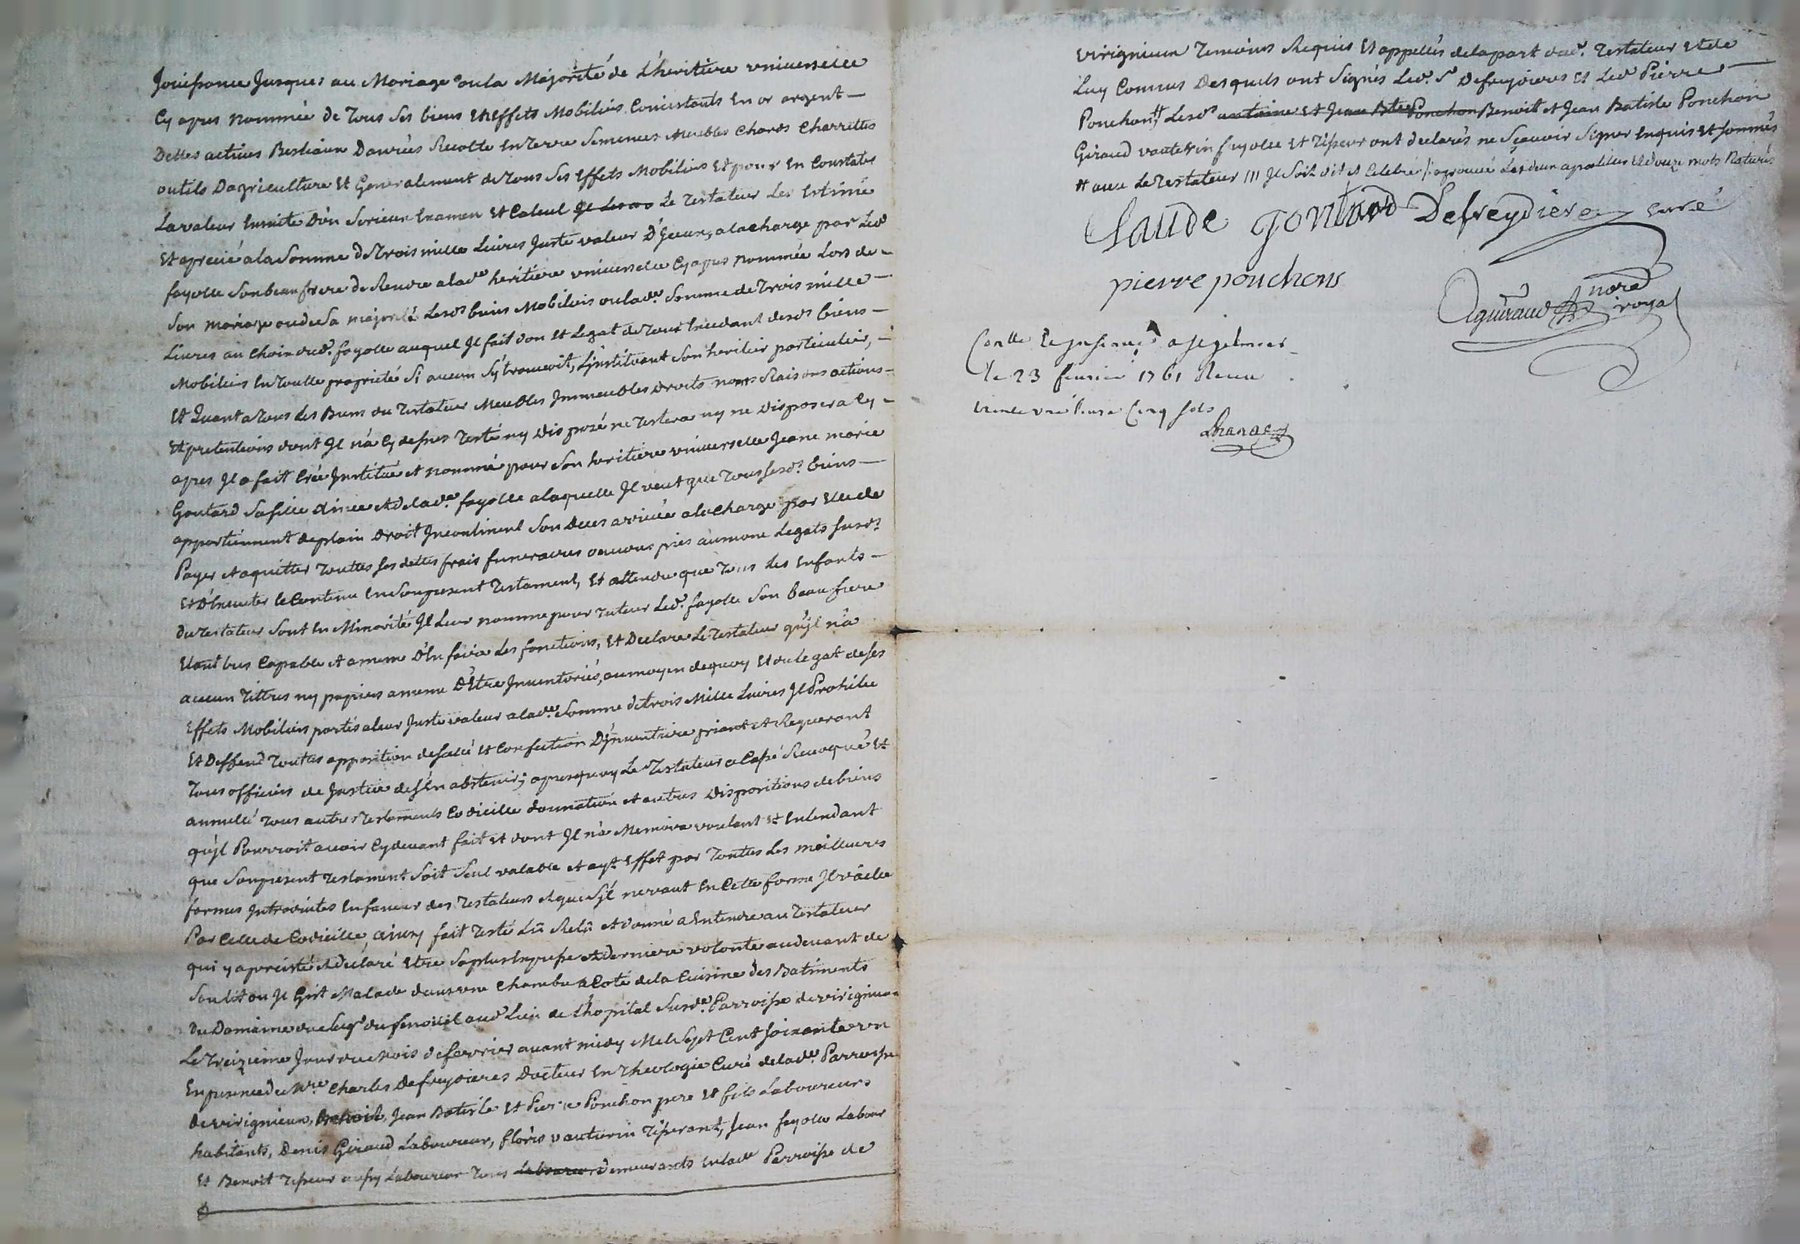 Jouissance Jusques au Mariage ou la Majorité de L'heritiere universelle
Cy apres nommée de Tous ses biens et Effets Mobiliers Concistants En or argent —
Dettes actives Bestiaux Danrées Recolte En terre Semences Meubles Chards Charrettes
outils Dagriculture Et Generalement de tous Ses Effets Mobiliers Et pour En Constater
La valeur Ensuite D'un Serieux Examen Et Calcul Le Testateur Les Estimé
Et aprecié a la Somme De trois mille Livres Juste valeur D'Iceux, a la charge par Led
fayolle Son beau frere de Rendre a lade heritiere universelle Cy apres nommée Lors de
Son mariage ou de Sa majorité Lesds biens Mobiliers ou lade Somme de trois mille
Livres au Choix dud. fayolle auquel Jl fait don Et Legat de tout L'excedant desds biens —
Mobiliers En toutte proprieté Si aucun S'y trouvoit, L'instituant Son heritier particulier, —
Et Quant a tous Les Biens du Testateur Meubles Immeubles Droits noms Raisons actions —
Et pretentions dont Jl n'a Cy dessus Testé ny Disposé ne Testera ny ne Disposera Cy —
apres Jl a fait Créé Institué et nommé pour Son heritiere universelle Jeane marie
Goutard Sa fille ainée Et de lade fayolle a laquelle Jl veut que Tous Sesds biens —
appartiennent de plain Droit Incontinent Son Deces arrivée a la Charge par Elle de
Payer et aquitter Touttes Ses dettes frais funeraires aumone Legats Susds
Et D'Executer le Contenu En Son present Testament, Et attendu que Tous Les Enfants —
du Testateur Sont En Minorité Jl Leur nomme pour Tuteur Led. fayolle Son beau frere
Etant bien Capable et a meme D'En faire Les fonctions, Et Declare Le Testateur qu'jl n'a
aucun Tittres ny papiers a meme D'Etre Inventoriés, au moyen de quoy Et du Legat de Ses
Effets Mobiliers portés a leur Juste valeur a lade Somme de trois Mille Livres Jl Prohibe
Et Deffend Touttes apposition de Scellé Et Confection D'Inventaire priant et Requerant
Tous officiers de Justice de S'En abstenir; apres quoy Le Testateur a Cassé Revoqué Et
annullé Tous autres Testaments Codicille donnation et autres Dispositions de biens
qu'jl Pourroit avoir Cy devant fait Et dont Jl n'a Memoire voulant Et Entendant
que Son present Testament Soit Seul valable et ayt Effet par Touttes Les meilleures
formes Introduites En faveur des Testateurs et que S'jl ne vaut En Cette forme Jl vaille
Par Celle de Codicille, ainsy fait Testé Lû Relû et donné a Entendre au Testateur
qui y a persisté Et declaré Etre Sa plus Expresse et derniere volonté au devant de
Son lit ou Jl Git Malade dans une Chambre a Coté de la Cuisine des Batiments
du Domaine du Seigr du fenouil aud Lieu de L'hopital Susde Parroisse de virignieux
Le Treizieme Jour du Mois de fevrier avant midy Mil Sept Cent Soixante un
En presence de Mre Charles Defreydieres Docteur En Theologie Curé de lade Parroisse
de virignieux, Benoit, Jean Batiste Et Pierre Ponchon pere Et fils Laboureurs
habitants, Denis Giraud Laboureur, floris vauterin Tisserant, Jean fayolle Labour
Et Benoit Tisseur aussy Laboureur Tous demeurants En lade Parroisse de
virignieux Temoins Requis Et appellés de la part dud. Testateur Et de
Luy Connus Desquels ont Signés Led. Sr Defreydieres Et Led Pierre
Ponchon Lesds antoine Et Jean Bte Ponchon Benoit et Jean Batiste Ponchon
Giraud vauterin fayolle Et Tisseur ont declarés ne Sçavoir Signer Enquis Et Sommés
avec Le Testateur /// Jl Soit dit et Celebré / approuvé Les deux apostilles Et douze mots Raturés
Claude Goutard Defreydieres curé
pierre ponchons
Aguiraud nore royal
Conlle Et Insinué a
le 23 fevrier 1761 Recu
trente une livre Cinq sols